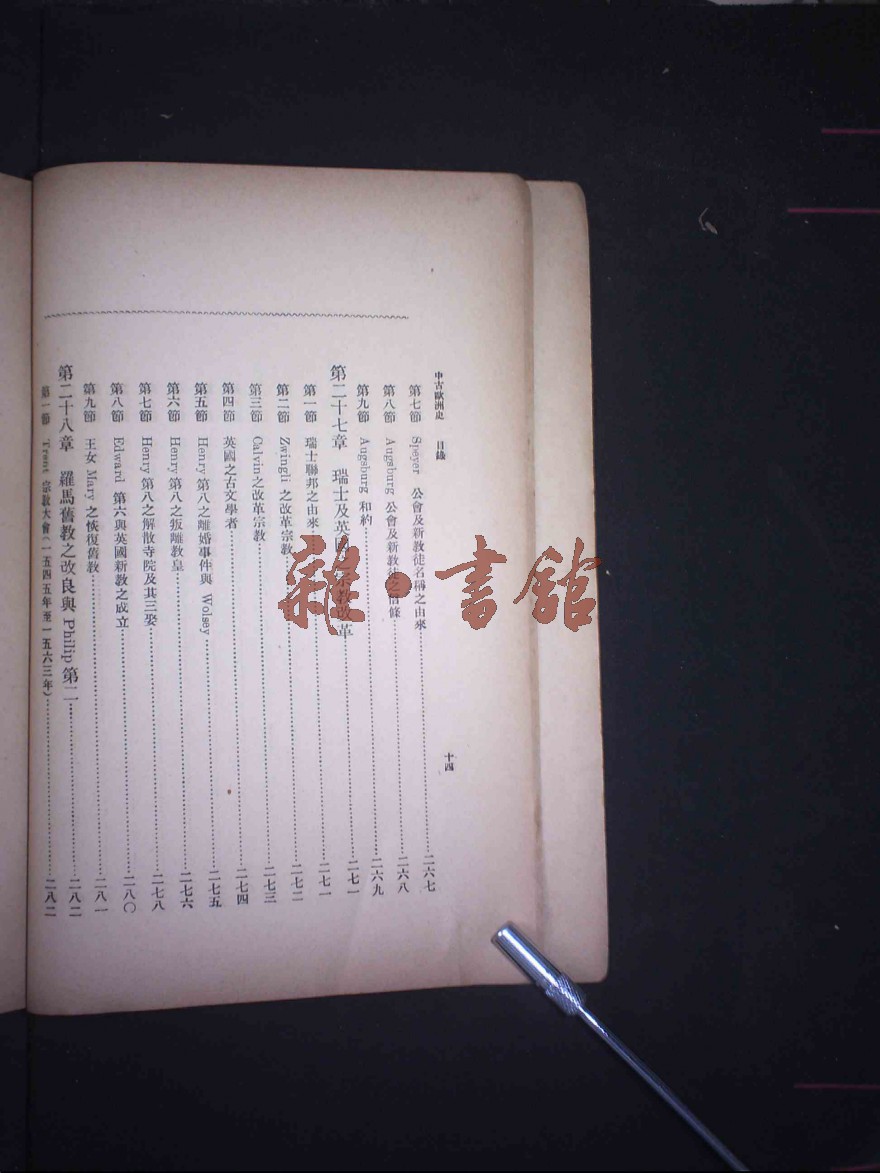 中古歐洲史 目錄 十四
第七節 Speyer 公會及新教徒名稱之由來 二六七
第八節 Augsburg 公會及新教徒之信條 二六八
第九節 Augsburg 和約 二六九
第二十七章 瑞士及英國之宗教改革 二七一
第一節 瑞士聯邦之由來 二七一
第二節 Zwingli 之改革宗教 二七二
第三節 Calvin之改革宗教 二七三
第四節 英國之古文學者 二七四
第五節 Henry 第八之離婚事件與 Wolsey 二七五
第六節 Henry 第八之叛離教皇 二七六
第七節 Henry 第八之解散寺院及其三娶 二七八
第八節 Edward 第六與英國新教之成立 二八〇
第九節 王女 Mary 之恢復舊教 二八一
第二十八章 羅馬舊教之改良與 Philip 第二 二八二
第一節 Trent 宗教大會(一五四五年至一五六三年) 二八二
雜·書館